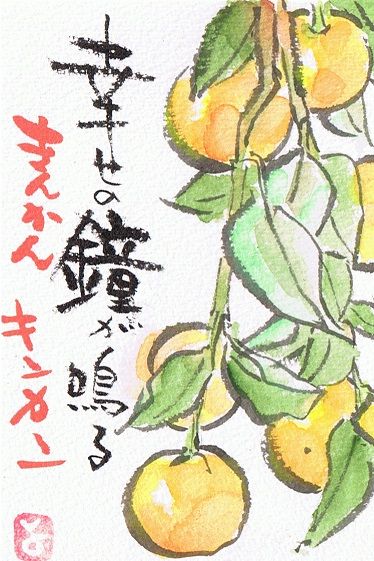 幸せの鐘が鳴る
きんかん キンカン